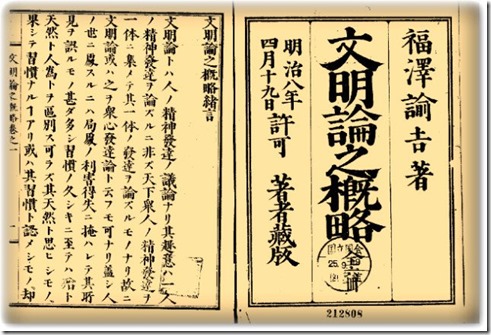 福澤諭吉著
文明論之概略
明治八年
四月十九日
許可
著者藏版
212808
文明論之概略緒言
文明論トハ人ノ精神發達ノ議論ナリ其趣意ハ一人
ノ精神發達ヲ論ズルニ非ズ天下衆人ノ精神發達ヲ
一体ニ集メテ其一体ノ發達ヲ論ズルモノナリ故ニ
文明論或ハ之ヲ衆心發達論ト云フモ可ナリ蓋シ人
ノ世ニ處スルニハ局處ノ利害得失ニ掩ハレテ其所
見ヲ誤ルモノ甚ダ多シ習慣ノ久シキニ至テハ殆ド
天然ト人爲トヲ區別ス可ラズ其天然ト思ヒシモノ、
果シテ習慣ナルヿアリ或ハ其習慣ト認メシモノ、却
文明論之概略卷之一
一